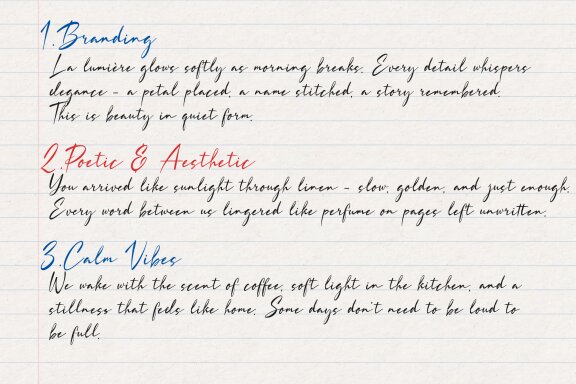 1.Branding
La lumière glows softly as morning breaks. Every detail whispers
elegance - a petal placed, a name stitched, a story remembered.
This is beauty in quiet form.
2.Poetic & Aesthetic
You arrived like sunlight through linen - slow, golden, and just enough.
Every word between us lingered like perfume on pages left unwritten.
3.Calm Vibes
We wake with the scent of coffee, soft light in the kitchen, and a
stillness that feels like home. Some days don't need to be loud to
be full.